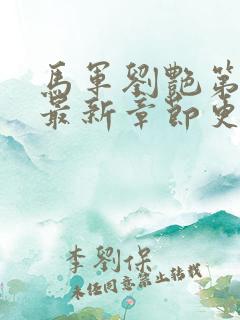 馬軍劉艷第
最新章節史
李劉保
未经同意禁止转载